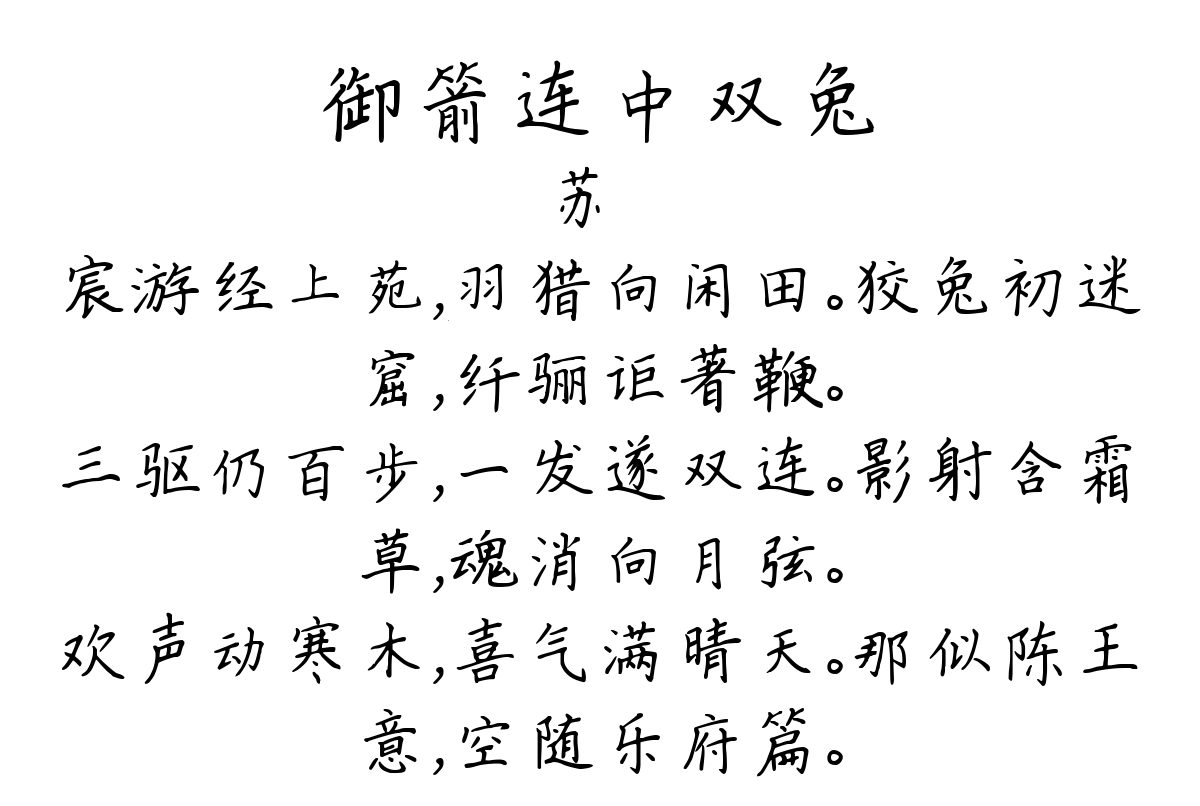 御箭连中双兔
苏
宸游经上苑,羽猎向闲田。狡兔初迷
窟,纤骊讵著鞭。
三驱仍百步,一发遂双连。影射含霜
草,魂消向月弦。
欢声动寒木,喜气满晴天。那似陈王
意,空随乐府篇。